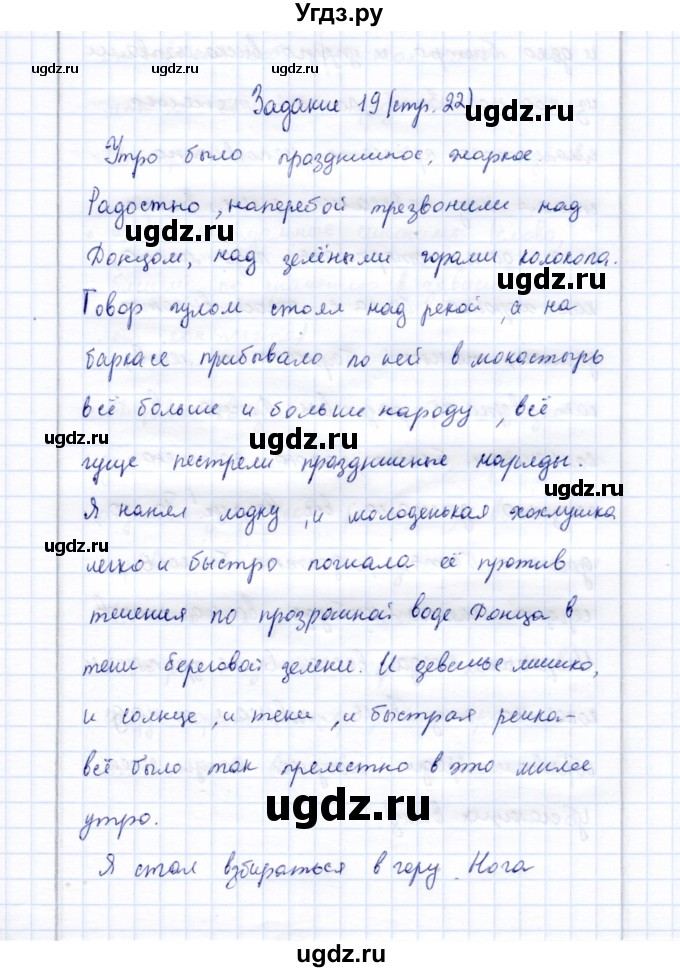 Угдз.ру
ugdz.ru ugdz.ru ugdz.ru
Задание 19 (стр. 22) ugdz.ru
Утро было праздничное, жаркое.
Радостно, наперебой трезвонили над
ugdz.ru
Донцом, над зелёными горами колокола.
ugdz.ru
Говор гулом стоял над рекой, а на
баркасе прибывало по ней в монастырь
всё больше и больше народу, всё
ugdz.ru ugdz.ru
гуще пестрели праздничные наряды.
ugdz.ru
Я нанял лодку, и молоденькая хохлушка
ugdz.ru
легко и быстро погнала её против
течения по прозрачной воде Донца в
тени береговой зелени. И девичье личико,
и солнце, и тени, и быстрая речка -
всё было так прелестно в это милое
ugdz.ru
утро.
Я стал взбираться в гору. Нога
ugdz.ru